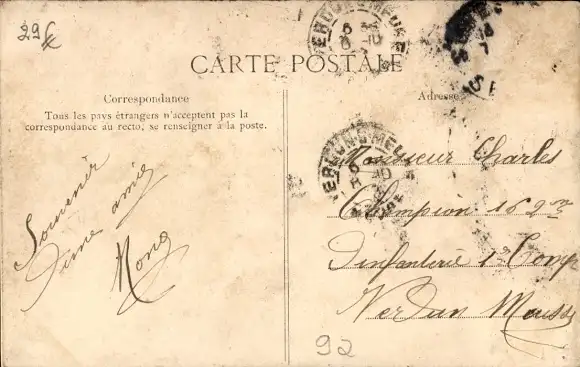 29
CARTE POSTALE
Correspondance
Tous les pays étrangers n'acceptent pas la
correspondance au recto, se renseigner à la poste.
Adresse
VERDUN S MEUSE
VERDUN S MEUSE
Souvenir
d'une amie
Monsieur Charles
Champion 162me
D'infanterie 1e Comp
Verdun Meuse
92